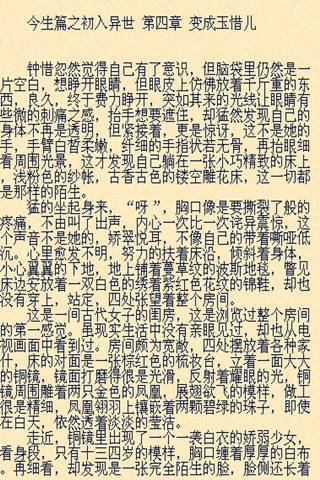 今生篇之初入异世 第四章 变成玉惜儿
钟惜忽然觉得自己有了意识，但脑袋里仍然是一
片空白，想睁开眼睛，但眼皮上仿佛放着千斤重的东
西，良久，终于费力睁开，突如其来的光线让眼睛有
些微的刺痛之感，抬手想要遮住，却猛然发现自己的
身体不再是透明，但紧接着，更是惊讶，这不是她的
手，手臂白皙柔嫩，纤细的手指状若无骨，再抬眼细
看周围光景，这才发现自己躺在一张小巧精致的床上
，浅粉色的纱帐，古香古色的镂空雕花床，这一切都
是那样的陌生。
猛的坐起身来，“呀”，胸口像是要撕裂了般的
疼痛，不由叫了出声，内心一次比一次诧异震惊，这
个声音不是她的，娇翠悦耳，不像自己的带着嘶哑低
沉。心里愈发不明，努力的扶着床沿，倾斜着身体，
小心翼翼的下地，地上铺着蔓草纹的波斯地毯，瞥见
床边安放着一双白色的绣着紫红色花纹的锦鞋，却也
没有穿上，站定，四处张望着整个房间。
这是一间古代女子的闺房，这是浏览过整个房间
的第一感觉。虽现实生活中没有亲眼见过，却也从电
视画面中看到过。房间颇为宽敞，四处摆放着各种家
什，床的对面是一张棕红色的梳妆台，立着一面大大
的铜镜，镜面打磨得很是光滑，反射着耀眼的光，铜
镜周围雕着两只金色的凤凰，展翅欲飞的模样，做工
很是精细，凤凰翎羽上镶嵌着两颗碧绿的珠子，即使
在白天，依然透着淡淡的莹洁。
走近，铜镜里出现了一个一袭白衣的娇弱少女，
看身段，只有十三四岁的模样，胸口缠着厚厚的白布
。再细看，却发现是一张完全陌生的脸，脸侧还长着